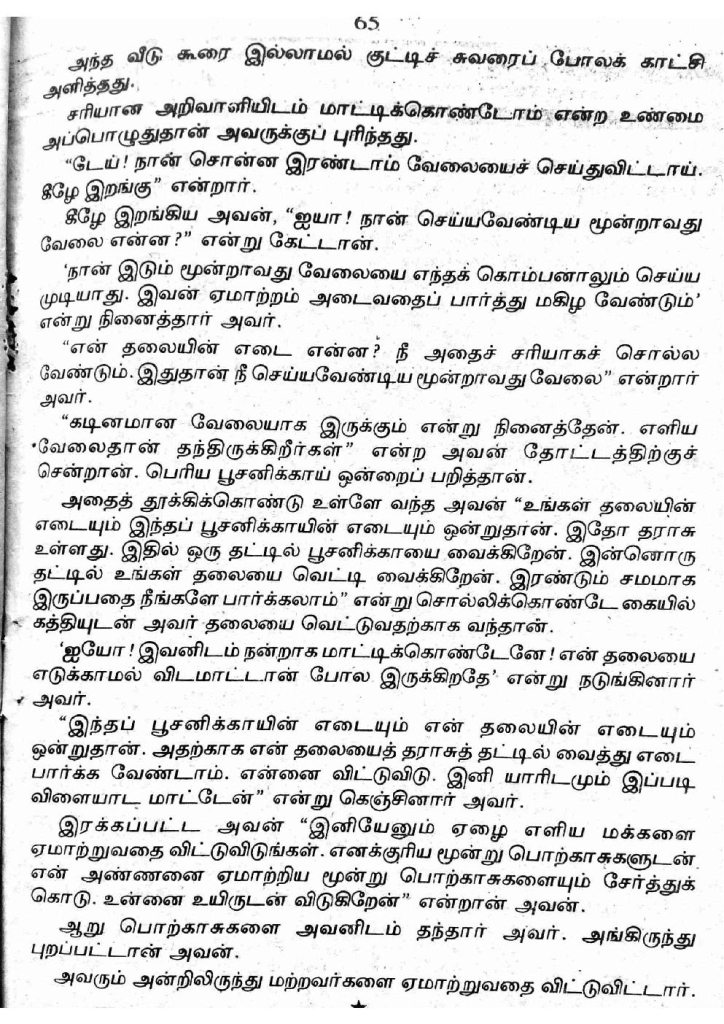 65
அந்த வீடு கூரை இல்லாமல் குட்டிச் சுவரைப் போலக் காட்சி
அளித்தது.
சரியான அறிவாளியிடம் மாட்டிக்கொண்டோம் என்ற உண்மை
அப்பொழுதுதான் அவருக்குப் புரிந்தது.
“டேய்! நான் சொன்ன இரண்டாம் வேலையைச் செய்துவிட்டாய்.
கீழே இறங்கு” என்றார்.
கீழே இறங்கிய அவன், “ஐயா! நான் செய்யவேண்டிய மூன்றாவது
வேலை என்ன?” என்று கேட்டான்.
‘நான் இடும் மூன்றாவது வேலையை எந்தக் கொம்பனாலும் செய்ய
முடியாது. இவன் ஏமாற்றம் அடைவதைப் பார்த்து மகிழ வேண்டும்’
என்று நினைத்தார் அவர்.
“என் தலையின் எடை என்ன? நீ அதைச் சரியாகச் சொல்ல
வேண்டும். இதுதான் நீ செய்யவேண்டிய மூன்றாவது வேலை” என்றார்
அவர்.
“கடினமான வேலையாக இருக்கும் என்று நினைத்தேன். எளிய
வேலைதான் தந்திருக்கிறீர்கள்” என்ற அவன் தோட்டத்திற்குச்
சென்றான். பெரிய பூசனிக்காய் ஒன்றைப் பறித்தான்.
அதைத் தூக்கிக்கொண்டு உள்ளே வந்த அவன் “உங்கள் தலையின்
எடையும் இந்தப் பூசனிக்காயின் எடையும் ஒன்றுதான். இதோ தராசு
உள்ளது. இதில் ஒரு தட்டில் பூசனிக்காயை வைக்கிறேன். இன்னொரு
தட்டில் உங்கள் தலையை வெட்டி வைக்கிறேன். இரண்டும் சமமாக
இருப்பதை நீங்களே பார்க்கலாம்” என்று சொல்லிக்கொண்டே கையில்
கத்தியுடன் அவர் தலையை வெட்டுவதற்காக வந்தான்.
‘ஐயோ! இவனிடம் நன்றாக மாட்டிக்கொண்டேனே! என் தலையை
எடுக்காமல் விடமாட்டான் போல இருக்கிறதே’ என்று நடுங்கினார்
அவர்.
“இந்தப் பூசனிக்காயின் எடையும் என் தலையின் எடையும்
ஒன்றுதான். அதற்காக என் தலையைத் தராசுத் தட்டில் வைத்து எடை
பார்க்க வேண்டாம். என்னை விட்டுவிடு. இனி யாரிடமும் இப்படி
விளையாட மாட்டேன்” என்று கெஞ்சினார் அவர்.
இரக்கப்பட்ட அவன் “இனியேனும் ஏழை எளிய மக்களை
ஏமாற்றுவதை விட்டுவிடுங்கள். எனக்குரிய மூன்று பொற்காசுகளுடன்
என் அண்ணனை ஏமாற்றிய மூன்று பொற்காசுகளையும் சேர்த்துக்
கொடு. உன்னை உயிருடன் விடுகிறேன்” என்றான் அவன்.
ஆறு பொற்காசுகளை அவனிடம் தந்தார் அவர். அங்கிருந்து
புறப்பட்டான் அவன்.
அவரும் அன்றிலிருந்து மற்றவர்களை ஏமாற்றுவதை விட்டுவிட்டார்.